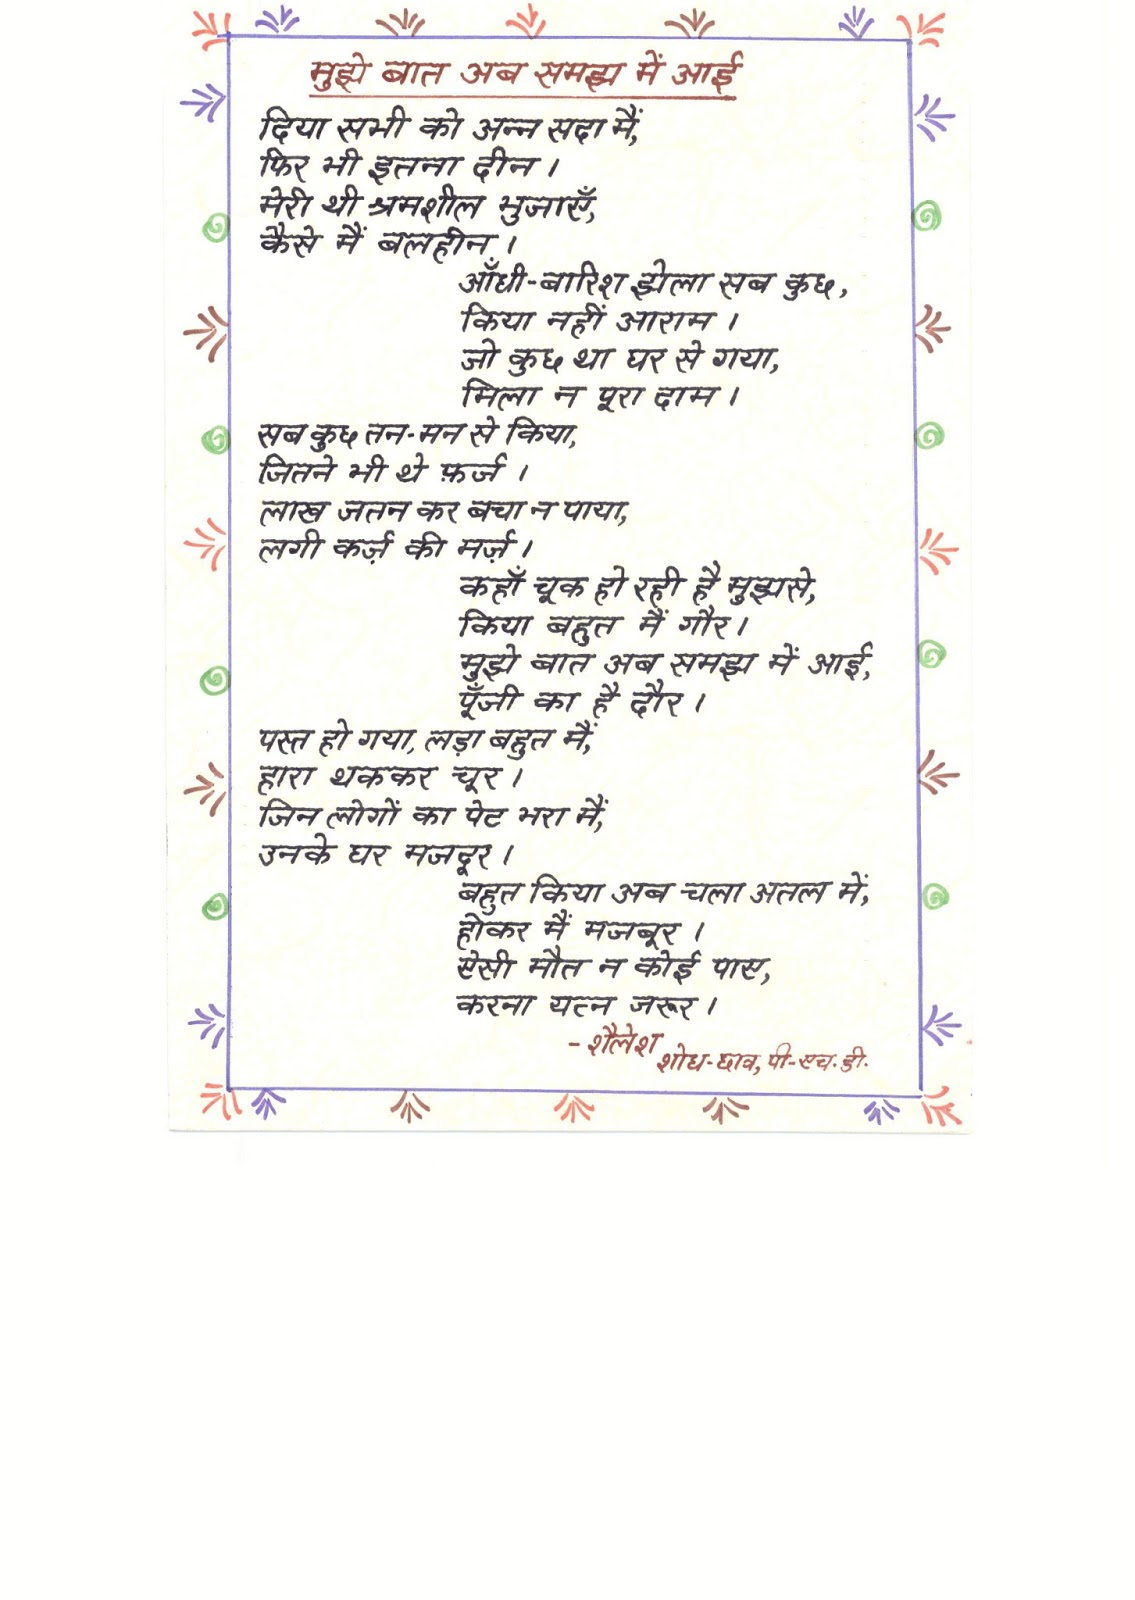 मुझे बात अब समझ में आई
दिया सभी को अन्न सदा मैं,
फिर भी इतना दीन ।
मेरी थी श्रमशील भुजाएँ,
कैसे मैं बलहीन ।
आँधी-बारिश झेला सब कुछ,
किया नहीं आराम ।
जो कुछ था घर से गया,
मिला न पूरा दाम ।
सब कुछ तन-मन से किया,
जितने भी थे फ़र्ज ।
लाख जतन कर बचा न पाया,
लगी कर्ज़ की मर्ज़ ।
कहाँ चूक हो रही है मुझसे,
किया बहुत मैं गौर ।
मुझे बात अब समझ में आई,
पूँजी का है दौर ।
पस्त हो गया, लड़ा बहुत मैं,
हारा थककर चूर ।
जिन लोगों का पेट भरा मैं,
उनके घर मजदूर ।
बहुत किया अब चला अतल में,
होकर मैं मजबूर ।
ऐसी मौत न कोई पास,
करना यत्न जरूर ।
- शैलेश
शोध-छात्र, पी-एच. डी.